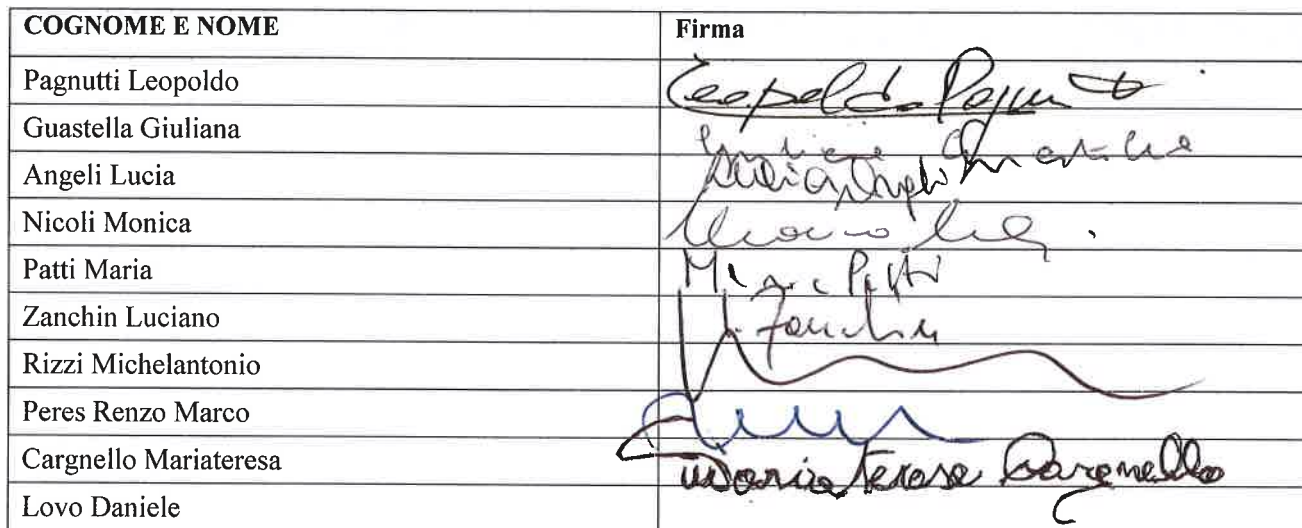 COGNOME E NOME Firma
Pagnutti Leopoldo Leopoldo Pagnutti
Guastella Giuliana Giuliana Guastella
Angeli Lucia Lucia Angeli
Nicoli Monica
Patti Maria Maria Patti
Zanchin Luciano L. Zanchin
Rizzi Michelantonio
Peres Renzo Marco
Cargnello Mariateresa Maria Teresa Cargnello
Lovo Daniele